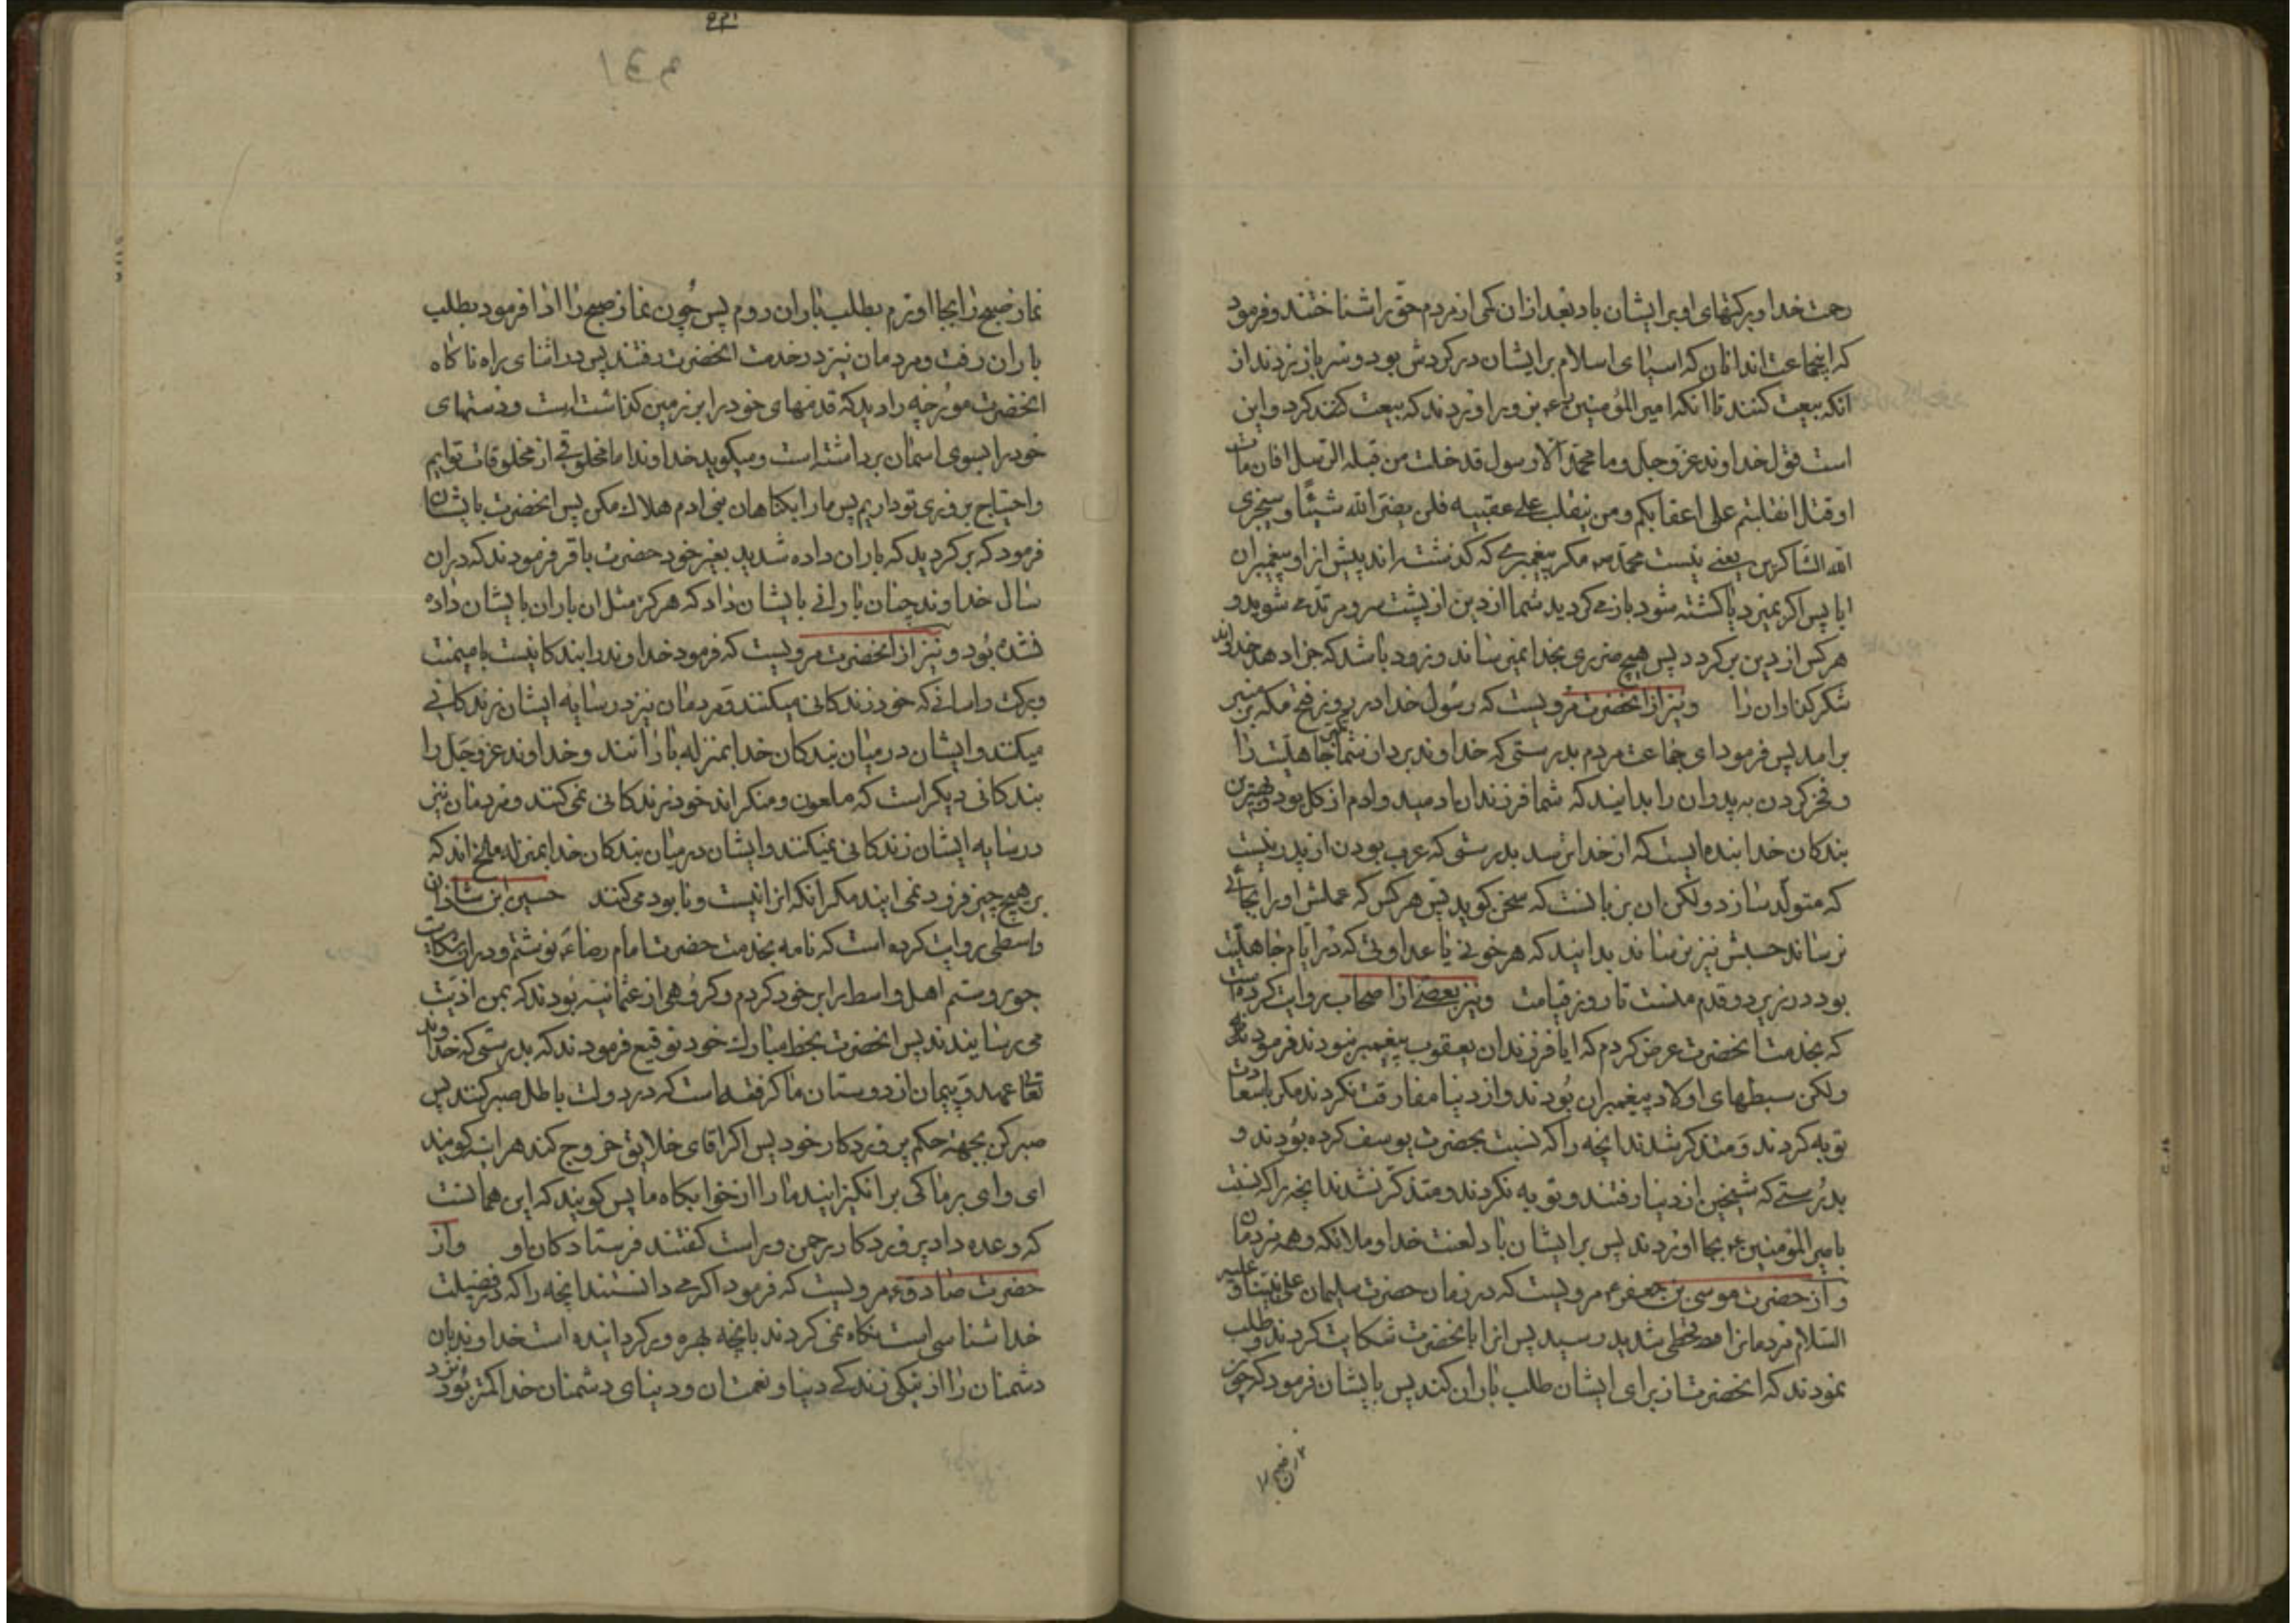 رحمت خدا و برکتهای او بر ایشان باد بعد از ان کمی از مردم حق را شناختند و فرمود
که اینجماعت اندانان که اسیای اسلام بر ایشان در کردش بود و سر باز زدند از
انکه بیعت کنند تا انکه امیر المؤمنین ع بزور اوردند که بیعت کند کرد و این
است قول خداوند عز و جل و ما محمد الا رسول قد خلت من قبله الرسل افان مات
او قتل انقلبتم علی اعقابکم و من ینقلب علی عقبیه فلن یضر الله شیئا و سیجزی
الله الشاکرین یعنی نیست محمد ص مکر پیغمبری که کذشته اند پیش از او پیغمبران
ایا پس اکر بمیرد یا کشته شود باز می کردید شما از دین از پشت سر و مرتد می شوید و
هر کس از دین بر کردد پس هیچ ضرری بخدا نمیرساند و زود باشد که جزا دهد خداوند
شکر کذاران را و نیز از انحضرت مرویست که رسول خدا در روز فتح مکه بر منبر
برامد پس فرمود ای جماعت مردم بدرستی که خداوند برد از شما تکبر جاهلیت را
و فخر کردن به پدران را بدانید که شما فرزندان ادمید و ادم از کل بود و بهترین
بندکان خدا بنده ایست که از خدا ترسد بدرستی که عرب بودن از پدر نیست
که متولد سازد ولکن ان زبانست که سخن کوید پس هر کس که عملش او را بجائی
نرساند حسبش نیز نرساند بدانید که هر خونی یا عداوتی که در ایام جاهلیت
بود در زیر دو قدم منست تا روز قیامت و نیز بعضی از اصحاب روایت کرده است
که بخدمت انحضرت عرض کردم که ایا فرزندان یعقوب پیغمبر نبودند فرمودند نه
ولکن سبطهای اولاد پیغمبران بودند و از دنیا مفارقت نکردند مکر با سعادت
توبه کردند و متذکر شدند انچه را که نسبت بحضرت یوسف کرده بودند و
بدرستی که شیخین از دنیا رفتند و توبه نکردند و متذکر نشدند انچه را که نسبت
بامیر المؤمنین ع بجا اوردند پس بر ایشان باد لعنت خدا و ملائکه و همه مردمان
و از حضرت موسی بن جعفر ع مرویست که در زمان حضرت سلیمان علی نبینا و علیه
السلام مردمانرا قحطی شدید رسید پس انرا بانحضرت شکایت کردند و طلب
نمودند که انحضرت از برای ایشان طلب باران کند پس بایشان فرمود که چون
نماز صبح را بجا اورم بطلب باران روم پس چون نماز صبح را ادا فرمود بطلب
باران رفت و مردمان نیز در خدمت انحضرت رفتند پس در اثنای راه ناکاه
انحضرت مورچه را دید که قدمهای خود را بر زمین کذاشته است و دستهای
خود را بسوی اسمان برداشته است و میکوید خداوندا ما مخلوقی از مخلوقات توایم
و احتیاج بروزی تو داریم پس ما را بکناهان بنی ادم هلاک مکن پس انحضرت بایشان
فرمود که بر کردید که باران داده شدید بغیر خود حضرت باقر فرمودند که در ان
سال خداوند چنان بارانی بایشان داد که هرکز مثل ان باران بایشان داده
نشده بود و نیز از انحضرت مرویست که فرمود خداوند را بندکانیست با میمنت
و برکت و اسانی که خود زندکانی میکنند و مردمان نیز در سایه ایشان زندکانی
میکنند و ایشان در میان بندکان خدا بمنزله بارانند و خداوند عز و جل را
بندکانی دیکر است که ملعون و منکر اند خود زندکانی نمی کنند و مردمان نیز
در سایه ایشان زندکانی نمیکنند و ایشان در میان بندکان خدا بمنزله ملخ اند که
بر هیچ چیز فرود نمی ایند مکر انکه انرا نیست و نابود می کنند حسین ابن شاذان
واسطی روایت کرده است که نامه بخدمت حضرت امام رضا ع نوشتم و در ان شکایت
جور و ستم اهل واسط را بر خود کردم و کروهی از عثمانیه بودند که بمن اذیت
می رسانیدند پس انحضرت بخط مبارک خود توقیع فرمودند که بدرستی که خداوند
تعا عهد و پیمان از دوستان ما کرفته است که در دولت باطل صبر کنند پس
صبر کن بجهة حکم پروردکار خود پس اکر اقای خلایق خروج کند هر اینه کویند
ای وای بر ما کی بر انکیزانید ما را از خوابکاه ما پس کویند که این همانست
که وعده داد پروردکار رحمن و راست کفتند فرستادکان او و از
حضرت صادق ع مرویست که فرمود اکر می دانستند انچه را که در فضیلت
خدا شناسی است نکاه نمی کردند بانچه بهره ور کردانیده است خداوند بان
دشمنان را از نیکی زندکی دنیا و نعمتان و دنیای دشمنان خدا کمتر بود نزد